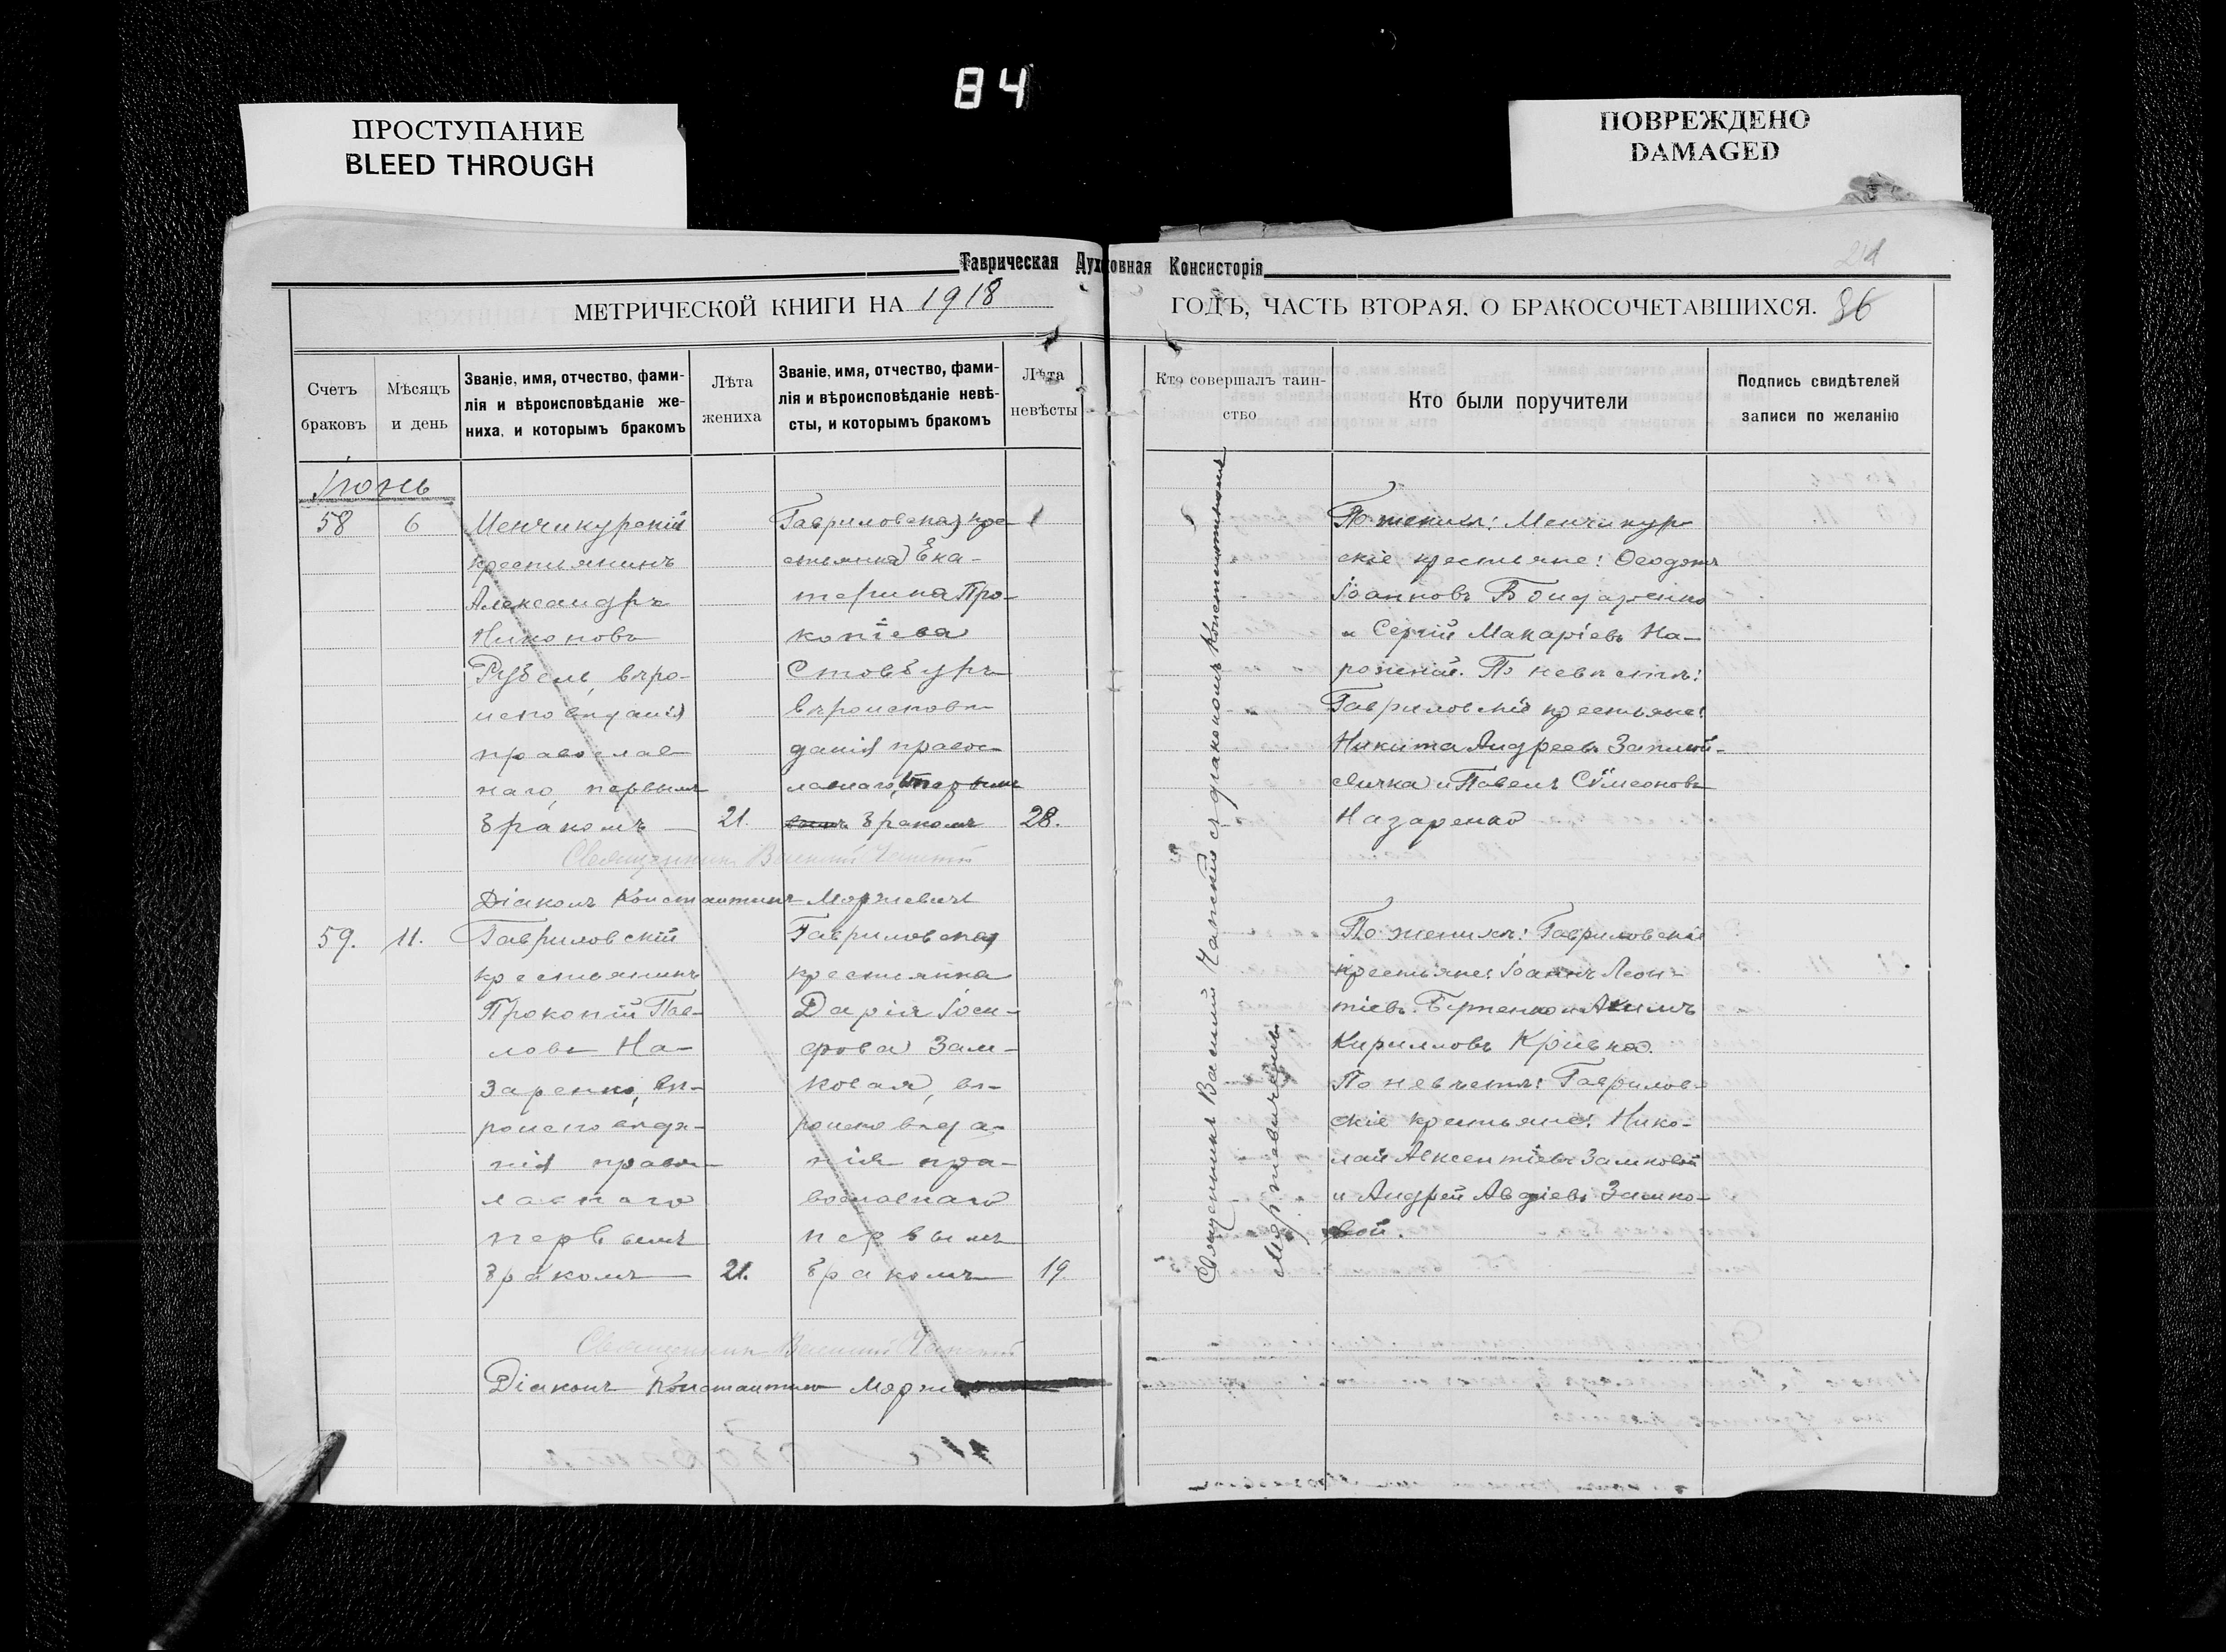 84
ПРОСТУПАНИЕ
BLEED THROUGH
ПОВРЕЖДЕНО
DAMAGED
Таврическая Духовная Консисторія
МЕТРИЧЕСКОЙ КНИГИ НА 1918
ГОДЪ, ЧАСТЬ ВТОРАЯ, О БРАКОСОЧЕТАВШИХСЯ. 86
Счетъ
браковъ
Мѣсяцъ
и день
Званіе, имя, отчество, фами-
лія и вѣроисповѣданіе же-
ниха, и которымъ бракомъ
Лѣта
жениха
Званіе, имя, отчество, фами-
лія и вѣроисповѣданіе невѣ-
сты, и которымъ бракомъ
Лѣта
невѣсты
Кто совершалъ таин-
ство
Кто были поручители
Подпись свидѣтелей
записи по желанію
58
6
Менчикурскій
крестьянинъ
Александръ
Никоновъ
Рубель, вѣро-
исповѣданія
православ-
наго, первымъ
бракомъ
21.
Гавриловская кре-
стьянка Ека-
терина Про-
копіева
Стовбуръ
вѣроисповѣ-
данія правос-
лавнаго,
бракомъ
28.
Священникъ Василій
Діаконъ Константинъ
По женихѣ: Менчикур-
скіе крестьяне: Ѳеодотъ
Іоанновъ Бондаренко
и Сергій Макаріевъ На-
рожній. По невѣстѣ:
Гавриловскіе крестьяне:
Никита Андреевъ
и Павелъ Сѵмеоновъ
Назаренко
59.
11.
Гавриловскій
крестьянинъ
Прокопій Пав-
ловъ На-
заренко, вѣ-
роисповѣда-
нія правос-
лавнаго
первымъ
бракомъ
21.
Гавриловская
крестьянка
Дарія Іоси-
фова Зам-
ковая, вѣ-
роисповѣда-
нія пра-
вославнаго
первымъ
бракомъ
19.
Священникъ Василій
Діаконъ Константинъ
По женихѣ: Гавриловскіе
крестьяне: Іоаннъ Леон-
тіевъ и Акимъ
Кирилловъ Кривка.
По невѣстѣ: Гаврилов-
скіе крестьяне: Нико-
лай Авксентіевъ Замковой
и Андрей Авдіевъ Замко-
вой.
Священникъ Василій съ діакономъ Константиномъ